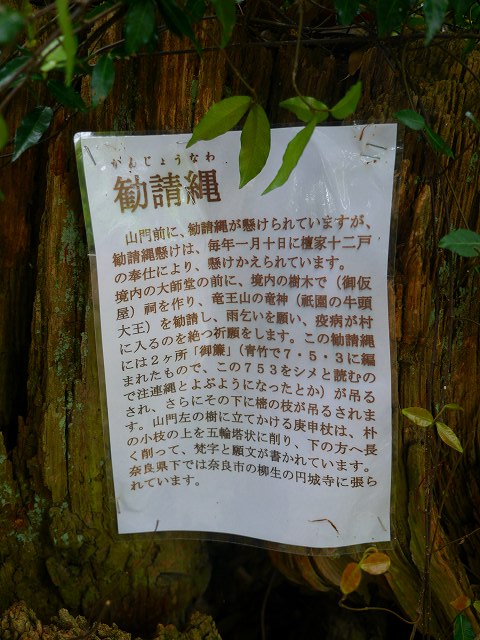 かんじょうなわ
勧請縄
山門前に、勧請縄が懸けられていますが、
勧請縄懸けは、毎年一月十日に檀家十二戸
の奉仕により、懸けかえられています。
境内の大師堂の前に、境内の樹木で（御仮
屋）祠を作り、竜王山の竜神（祇園の牛頭
大王）を勧請し、雨乞いを願い、疫病が村
に入るのを絶つ祈願をします。この勧請縄
には２ヶ所「御簾」（青竹で７・５・３に編
まれたもので、この７５３をシメと読むの
で注連縄とよぶようになったとか）が吊る
され、さらにその下に樒の枝が吊るされま
す。山門左の樹に立てかける庚申杖は、朴
の小枝の上を五輪塔状に削り、下の方へ長
く削って、梵字と願文が書かれています。
奈良県下では奈良市の柳生の円城寺に張ら
れています。